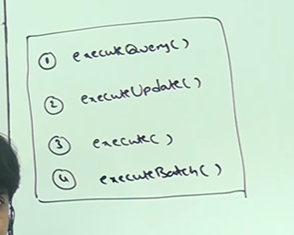 ① executeQuery()
② executeUpdate()
③ execute()
④ executeBatch()